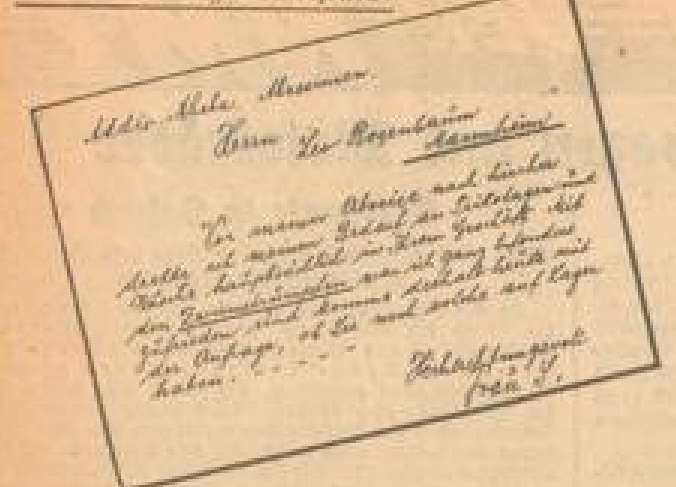 Herrn Leo Rosenbaum
Mannheim
Vor meiner Abreise nach
deckte ich meinen Bedarf an Trikotagen und
Wäsche hauptsächlich in Ihrem Geschäft. Mit
den war ich ganz besonders
zufrieden und komme deshalb heute mit
der Anfrage, ob Sie noch solche auf Lager
haben. - - - - -
Hochachtungsvoll
Frau Y.